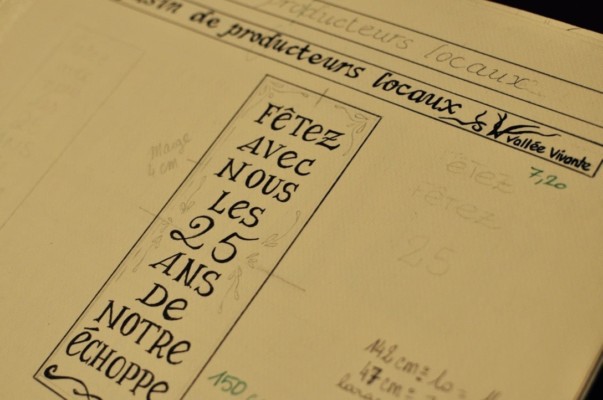 producteurs locaux
de producteurs locaux
Vallée Vivante
7,20
FÊTEZ
AVEC
NOUS
LES
25
ANS
DE
NOTRE
ÉCHOPPE
Marge
4 cm
FÊTEZ
25
150
142 cm²
47 cm²